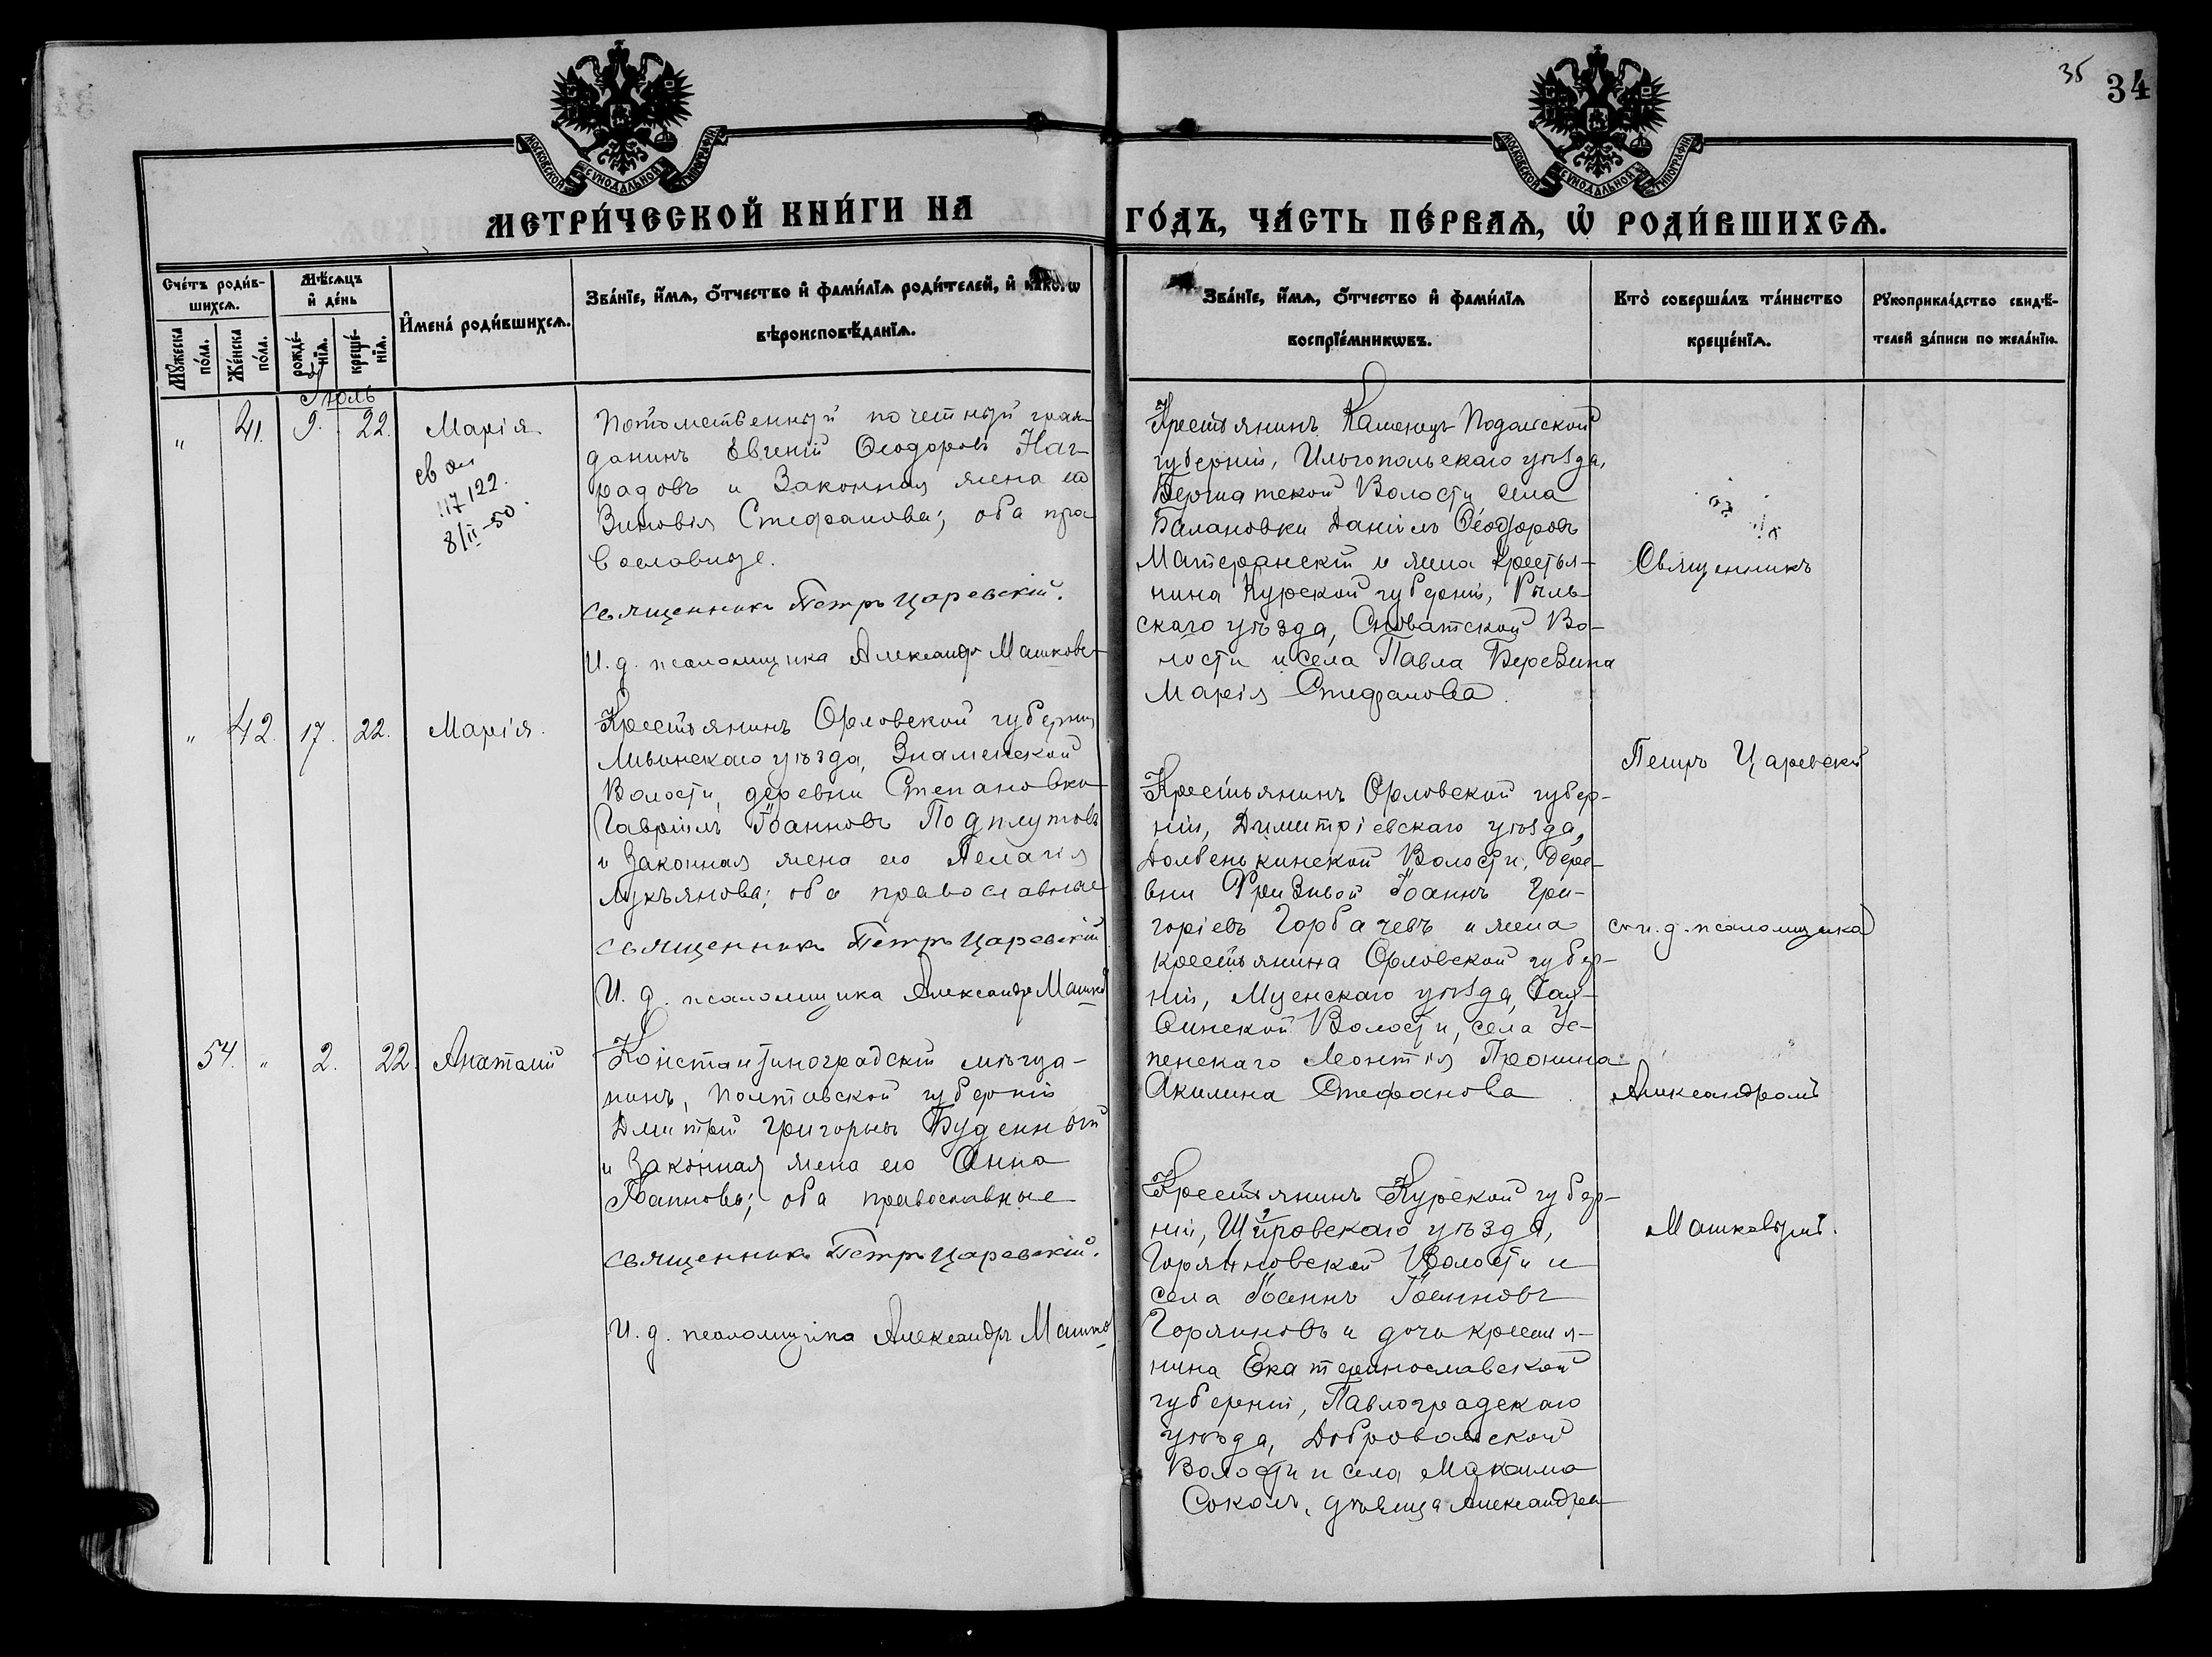 35 34
МОСКОВСКОЙ СѴНОДАЛЬНОЙ ТИПОГРАФІИ
МОСКОВСКОЙ СѴНОДАЛЬНОЙ ТИПОГРАФІИ
МЕТРИ́ЧЕСКОЙ КНИ́ГИ НА
ГО́ДЪ, ЧА́СТЬ ПЕ́РВАѦ, Ѡ҆ РОДИ́ВШИХСѦ.
Сче́тъ роди́в-
шихсѧ.
Мꙋ́жеска
по́ла.
Же́нска
по́ла.
Мѣ́сѧцъ
и҆ де́нь
рожде́-
нїѧ.
креще́-
нїѧ.
И҆мена́ роди́вшихсѧ.
Зва́нїе, и҆́мѧ, ѻ҆́тчество и҆ фами́лїѧ роди́телей, и҆ како́гѡ
вѣроисповѣ́данїѧ.
Зва́нїе, и҆́мѧ, ѻ҆́тчество и҆ фами́лїѧ
воспрїе́мникѡвъ.
Кто̀ соверша́лъ та́инство
креще́нїѧ.
Рꙋкоприкла́дство свидѣ́-
телей за́писи по жела́нїю.
Іюль
" 41. 9. 22. Марія.
св
117122.
8/II-50.
Потомственный почетный граж-
данинъ Евгеній Ѳеодоровъ Наг-
радовъ и законная жена его
Зиновія Стефанова; оба пра
вославные.
священникъ Петръ Царевскій.
И. д. псаломщика Александръ Машков
Крестьянинъ Каменецъ Подольской
губерніи, Ольгопольскаго уѣзда,
Бершатской Волости села
Балановки Даніилъ Ѳеодоровъ
и жена крестья-
нина Курской губерніи, Рыль-
скаго уѣзда, Сноватской Во-
лости и села Павла Березина
Марія Стефанова.
Священникъ
" 42. 17. 22. Марія.
Крестьянинъ Орловской губерніи
Ливинскаго уѣзда, Знаменской
Волости, деревни Степановки
Гавріилъ Іоанновъ Подплутовъ
и законная жена его Пелагія
Лукъянова; оба православные
священникъ Петръ Царевскій
И. д. псаломщика Александръ Машков
Крестьянинъ Орловской губер-
ніи, Димитріевскаго уѣзда,
Долбенькинской Волости, дере-
вни Іоаннъ Гри-
горіевъ Горбачевъ и жена
крестьянина Орловской губер-
ніи, Мценскаго уѣзда,
Волости, села Ус-
пенскаго Леонтія Пронина
Акилина Стефанова
Петръ Царевскій
съ и. д. псаломщика
Александромъ
Машковымъ.
54. " 2. 22. Анатолій
Константиноградскій мѣща-
нинъ, Полтавской губерніи
Дмитрій Григорьевъ Буденный
и законная жена его Анна
Іоаннова; оба православные
священникъ Петръ Царевскій.
И. д. псаломщика Александръ Машков
Крестьянинъ Курской губер-
ніи, Щигровскаго уѣзда,
Горяиновской Волости и
села Іоаннъ Іоанновъ
Горяиновъ и дочь крестья-
нина Екатеринославской
губерніи, Павлоградскаго
уѣзда, Добровольской
Волости и села Максима
Соколъ, дѣвица Александра